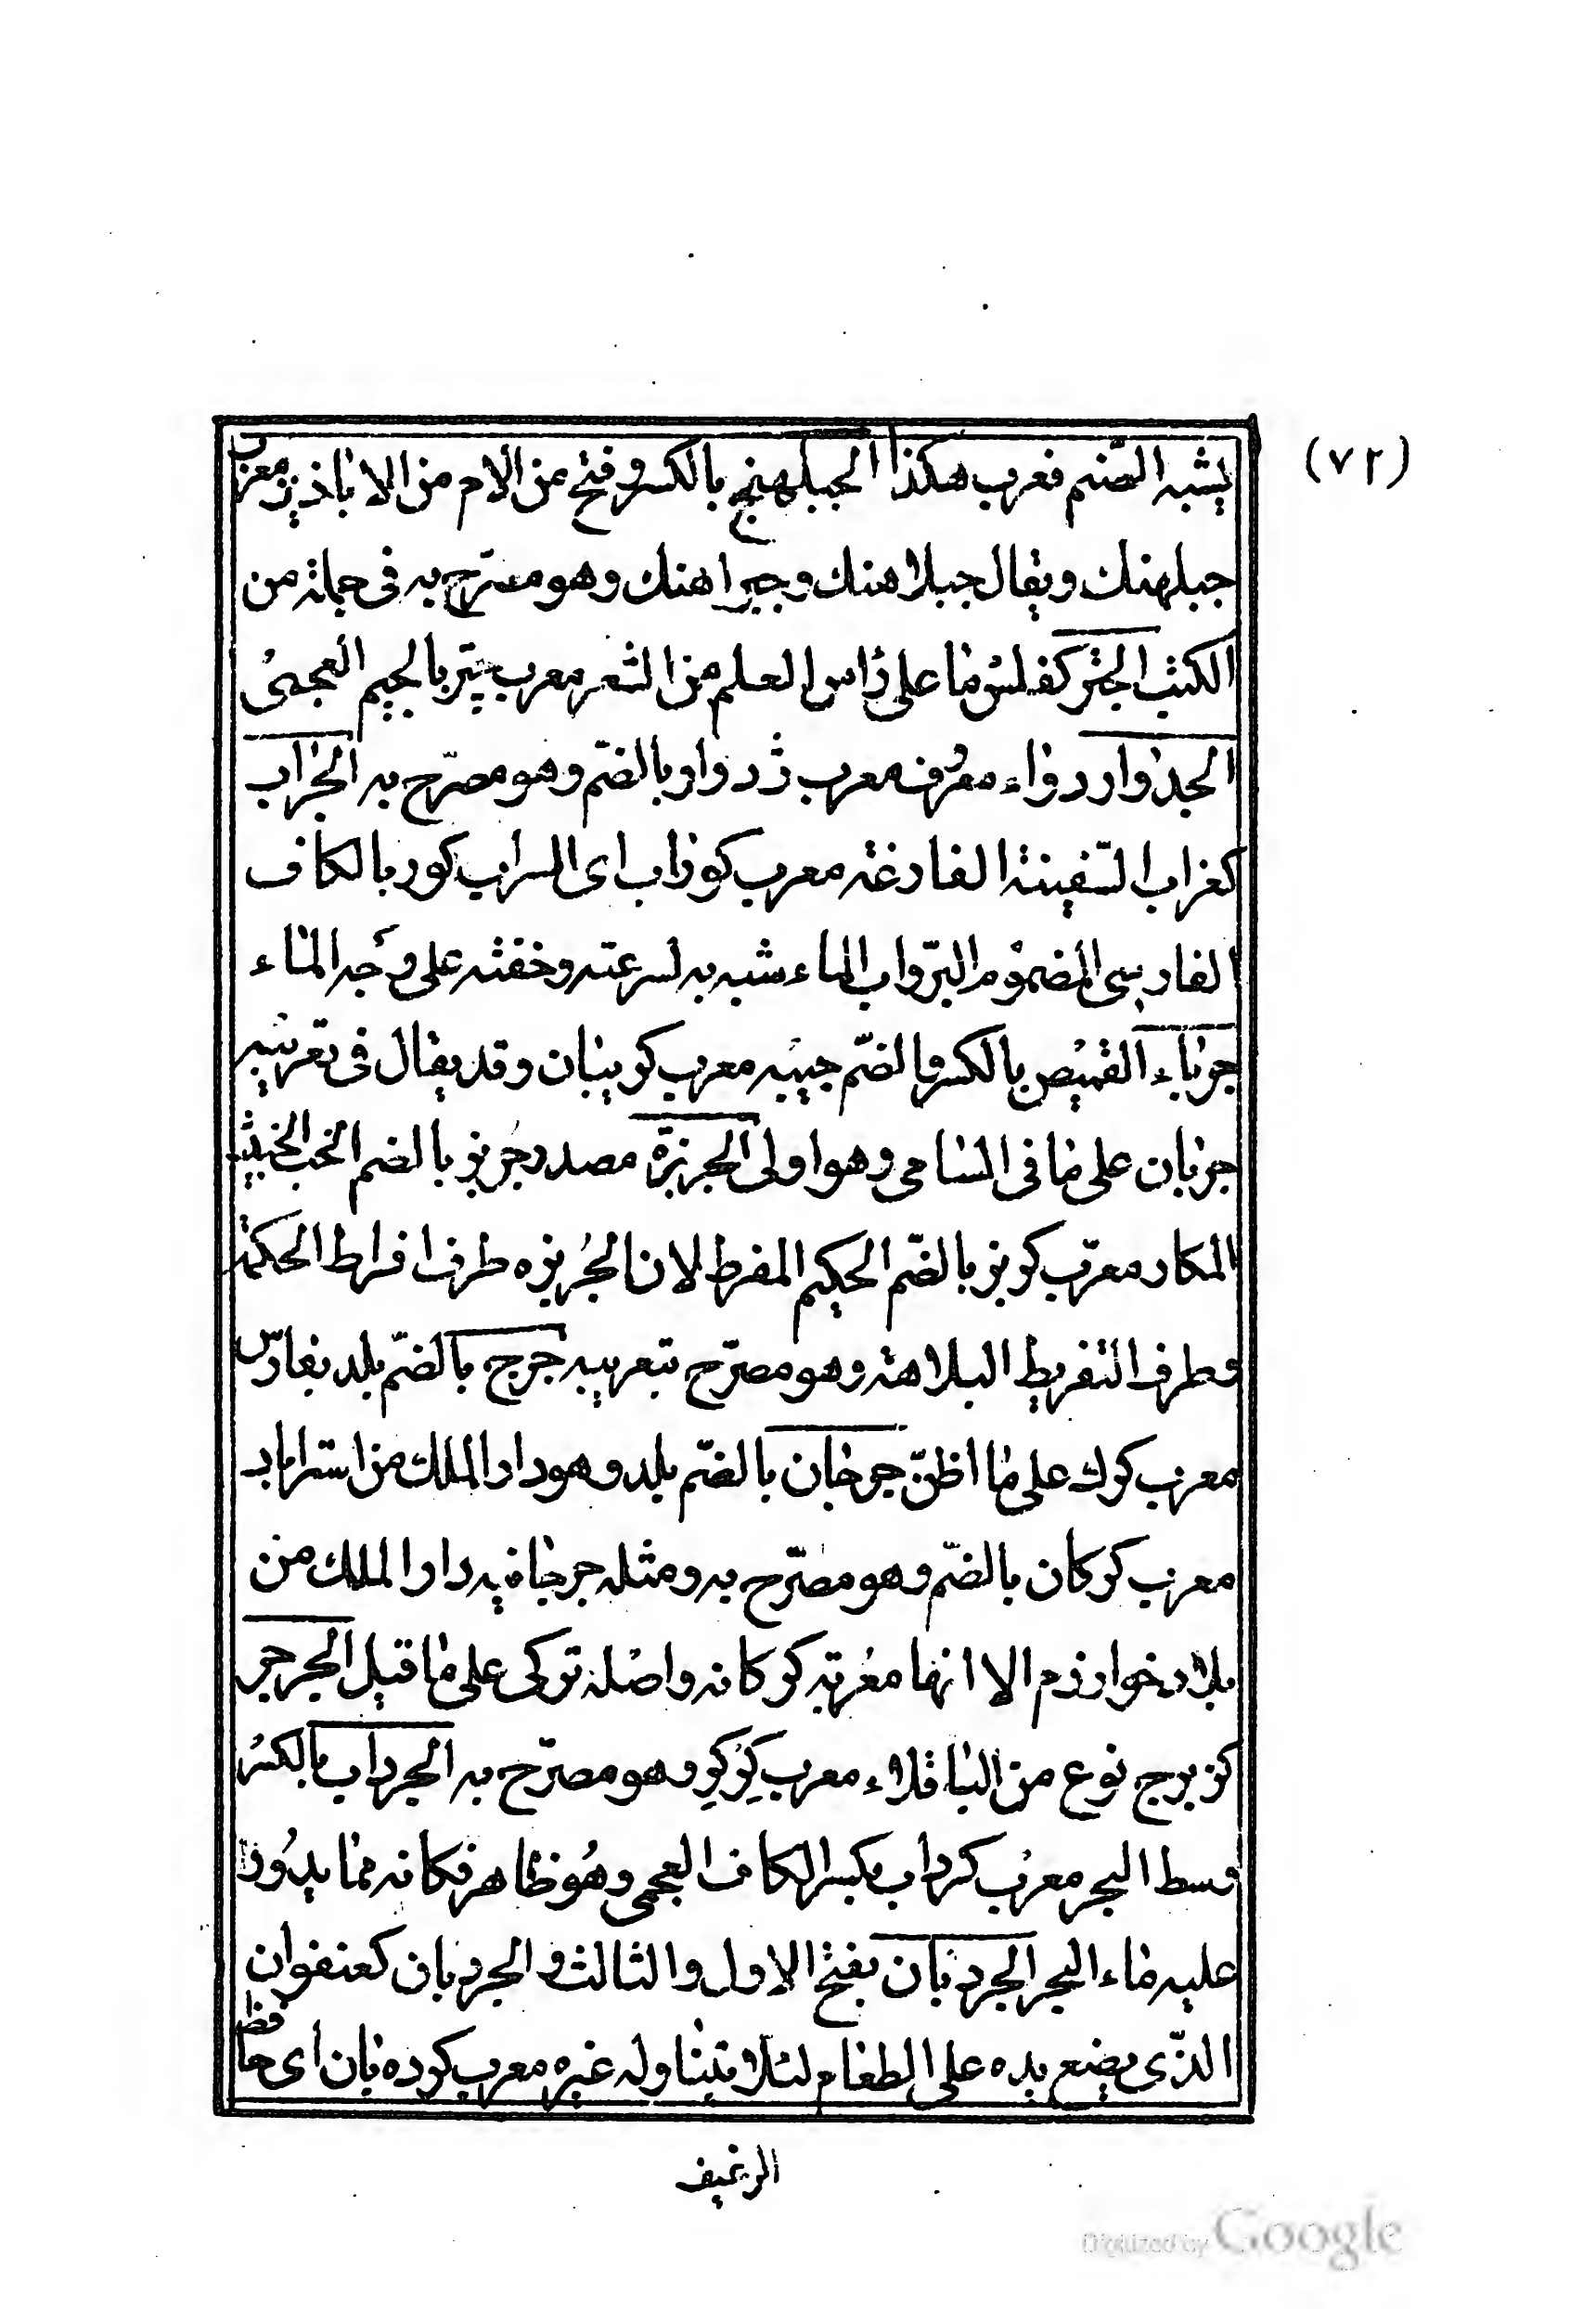 (٧٢)
يشبه الصّنم فعرب هكذا الجبلهنج بالكسر وفتح من الام من الاباذير معرب
جبلهنك ويقال جبلاهنك وجيراهنك وهو مصرّح به فى جملة من
الكتب الجتر كفلس ما على رأس العلم من الشعر معرب چتر بالجيم العجمى
الجدوار دواء معروف معرب ژدوار بالضّم وهو مصرّح به الجراب
كغراب السّفينة الفارغة معرب كوراب اى السراب كور بالكاف
الفارسى المضموم البرّ واب الماء شبه به لسرعته وخفته على وجه الماء
جرباء القميص بالكسر والضّم جيبه معرب كريبان وقد يقال فى تعريبه
جربان على ما فى السامى وهو اولى الجربزة مصدر جربز بالضم الخب الخبيث
المكار معرّب كربز بالضّم الحكيم المفرط لان الجربزه طرف افراط الحكمة
وطرف التفريط البلاهة وهو مصرّح بتعريبه جرج بالضّم بلد بفارس
معرب كرك على ما اظنّ جرجان بالضّم بلد وهو دار الملك من استراباد
معرب كركان بالضّم وهو مصرّح به ومثله جرجانيه دار الملك من
بلاد خوارزم الا انها معربة كركانه واصله تركى على ما قيل الجرجر
كزبرج نوع من الباقلاء معرب كركر وهو مصرّح به الجرداب بالكسر
وسط البحر معرب كرداب بكسر الكاف العجمى وهو ظاهر فكانه مما يدور
عليه ماء البحر الجردبان بفتح الاول والثالث والجردبان كعنفوان
الذّى يضع يده على الطعام لئلا يتناوله غيره معرب كرده بان اى حافظ
الرغيف
Digitized by Google